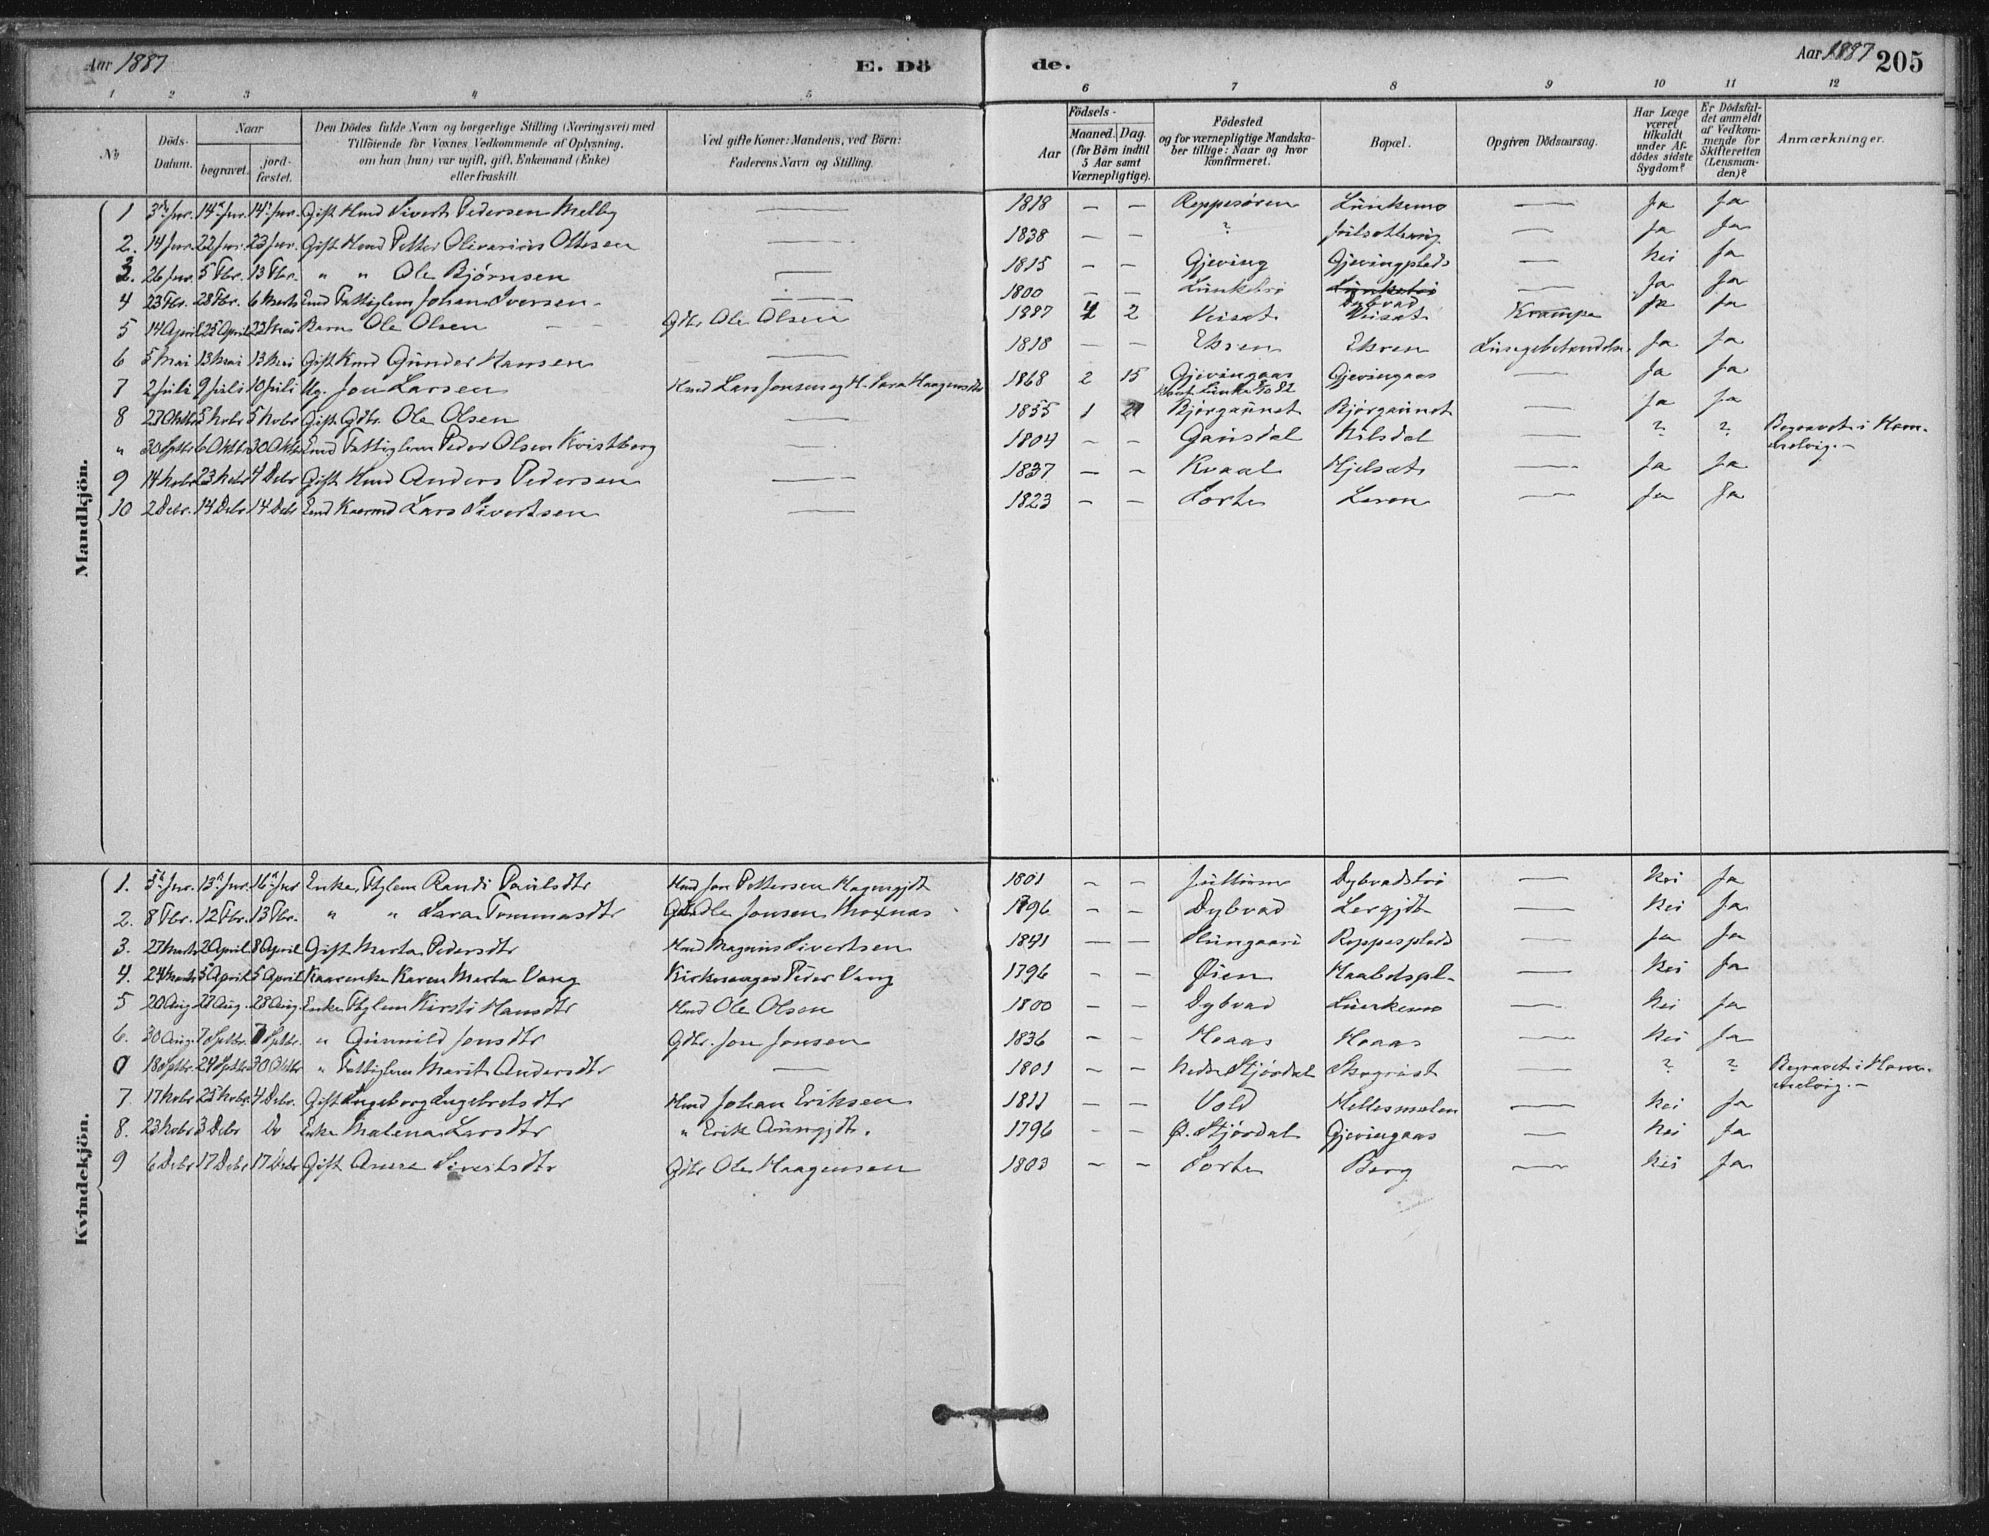 Aar 1887 E. Dö de. Aar 1887 205
1 2 3 4 5 6 7 8 9 10 11 12
No
Döds-Datum.
Naar
begravet.
jord-fæstet.
Den Dödes fulde Navn og borgerlige Stilling (Næringsvei) med
Tilföiende for Voxnes Vedkommende af Oplysning,
om han (hun) var ugift, gift, Enkemand (Enke)
eller fraskilt
Ved gifte Koner: Mandens, ved Börn:
Faderens Navn og Stilling.
Födsels-
Aar
Maaned. Dag.
(for Börn indtil
5 Aar samt
Værnepligtige).
Födested
og for værnepligtige Mandska-
ber tillige: Naar og hvor
konfirmeret.
Bopæl.
Opgiven Dödsaarsag.
Har Læge
været
tilkaldt
under Af-
dödes sidste
Sygdom?
Er Dödsfal-
det anmeldt
af Vedkom-
mende for
Skifteretten
(Lensman-
den)?
Anmærkninger.
Mandkjön.
1 3die Jnr. 14de Jnr. 14de Jnr. Gift Hmd Sivert Pedersen Melby — 1818 — — Reppesøren Lünkemo — Ja Ja
2. 14 Jnr. 22 Jnr. 23 Jnr. Gift Hmd Petter Olivarius Ottesen — 1838 — — ? — Ja Ja
3. 26 Jnr. 5 Fbr. 13 Fbr. " " Ole Bjørnsen — 1815 — — Gjeving Gjevingplads — Nei Ja
4 23 Fbr. 28 Fbr. 6 Marts Emd Fattiglem Johan Iversen — 1800 — — Lünketrø Lünketrø Dybvad — Ja Ja
5 14 April 25 April 22 Mai Barn Ole Olsen — Gdbr. Ole Olsen 1887 4 2 Veisat Veisat Krampe Ja Ja
6 5 Mai 13 Mai 13 Mai Gift Hmd Günder Hansen — 1818 — — Ekren Ekren Ja Ja
7 2 Juli 9 Juli 10 Juli Ug. Jon Larsen Hmd Lars Jonsen og H. Sara Haagensdtr 1868 2 15 Gjevingaas Gjevingaas — Ja Ja
8 27 Oktbr 5 Novbr 5 Novbr Gift Gdbr. Ole Olsen — 1855 1 21 Bjørgaünet Bjørgaünet — Ja Ja
" 30 Sptbr 6 Oktbr 30 Oktbr Emd Fattiglem Peder Olsen Kvistberg — 1804 — — Gausdal Nilsdal — ? ? Begravet i Hom-
melvig.—
9 14 Novbr 23 Novbr 4 Debr Gift Hmd Anders Pedersen — 1837 — — Kvaal Hjelsat — Ja Ja
10 2 Debr. 14 Debr 14 Debr Emd Kaarmd Lars Sivertsen — 1823 — — Forte Leren — Ja Ja
Kvindekjön.
1. 13de Jnr. 16de Jnr Enke, Ftglem Randi Paulsdtr Hmd Jon Pettersen 1801 — — Dybvadstrø — Nei Ja
2. 8 Fbr. 12 Fbr. 13 Fbr. " " Sara Tommasdtr Ole Jonsen Moxnas 1796 — — Dybvad Lergjdt — Nei Ja
3. 27 Marts 2 April 8 April Gift Marta Pedersdtr Hmd Magnus Sivertsen 1841 — — Reppesplads — Ja Ja
4. 24 Marts 5 April 5 April Kaarenke Karen Marta Vang Kirkesanger Peder Vang 1796 — — Øien — Nei Ja
5 20 Aug 27 Aug. 28 Aug. Enke Ftglem Kirsti Hansdtr Hmd Ole Olsen 1800 — — Dybvad Lünkemo — Nei Ja
6. 30 Aug. 7 Sptbr. 7 Sptbr. " Günnild Jonsdtr Gdbr. Jon Jonsen 1836 — — Hoaas Hoaas — Nei Ja
0 18 Sptbr. 24 Sptbr 30 Oktbr " Fattiglem Marit Andersdtr — 1801 — — Nedre Stjørdal — ? ? Begravet i Hom-
melvig.—
7. 17 Novbr 25 Novbr. 4 Debr. Gift Ingeborg Ingebretsdtr Hmd Johan Eriksen 1811 — — Vold Hellesmelen — Nei Ja
8. 23 Novbr 3 Debr Do Enke Malena Larsdtr " Erik 1796 — — Ø. Stjørdal Gjevingaas — Nei Ja
9 6 Debr 17 Debr 17 Debr Gift Anne Sivertsdtr Gdbr Ole Haagensen 1803 — — Forte Berg — Nei Ja